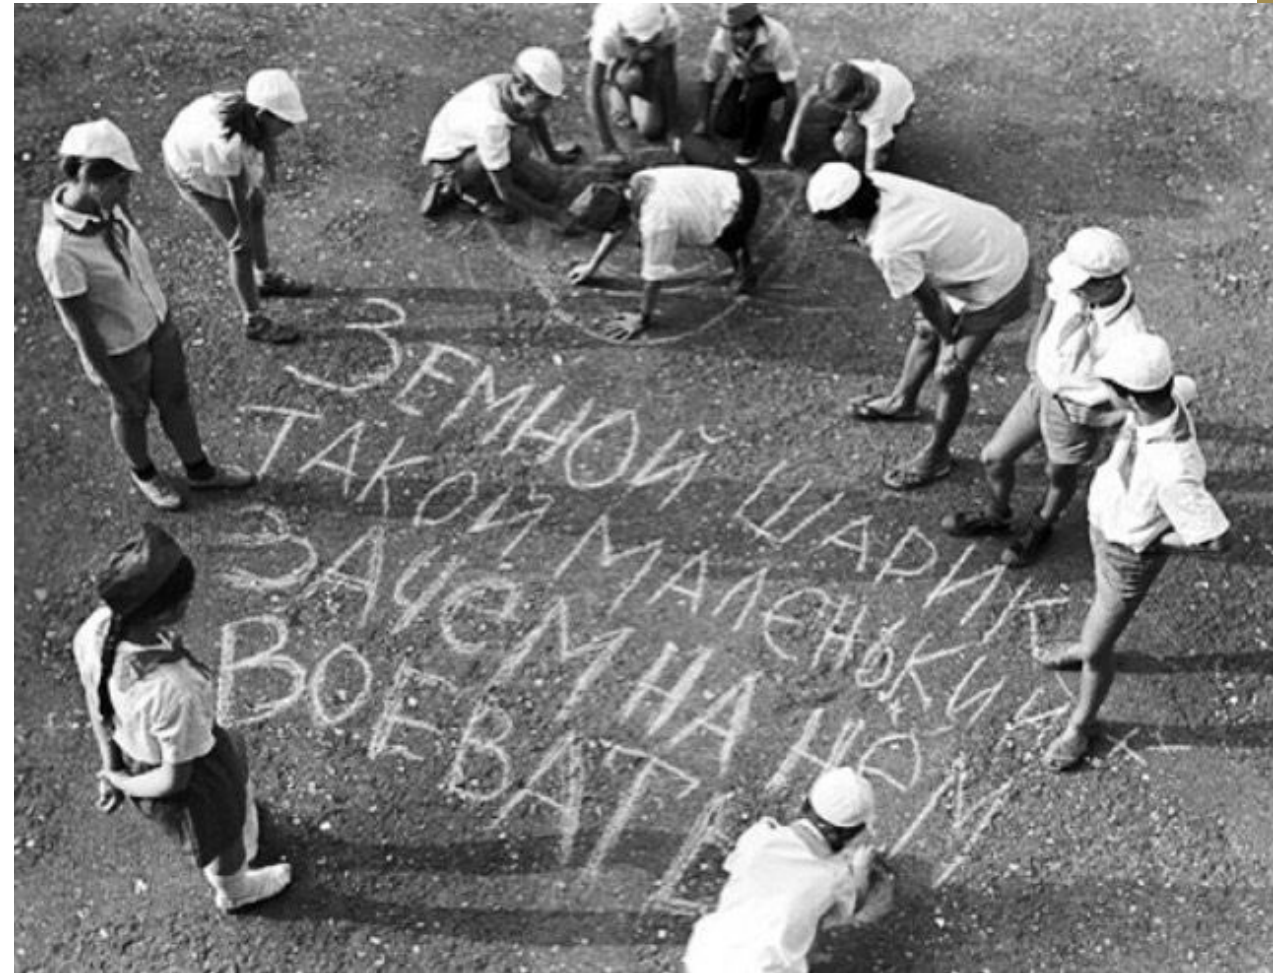 ЗЕМНОЙ ШАРИК
ТАКОЙ МАЛЕНЬКИЙ
ЗАЧЕМ НА НЕМ
ВОЕВАТЬ